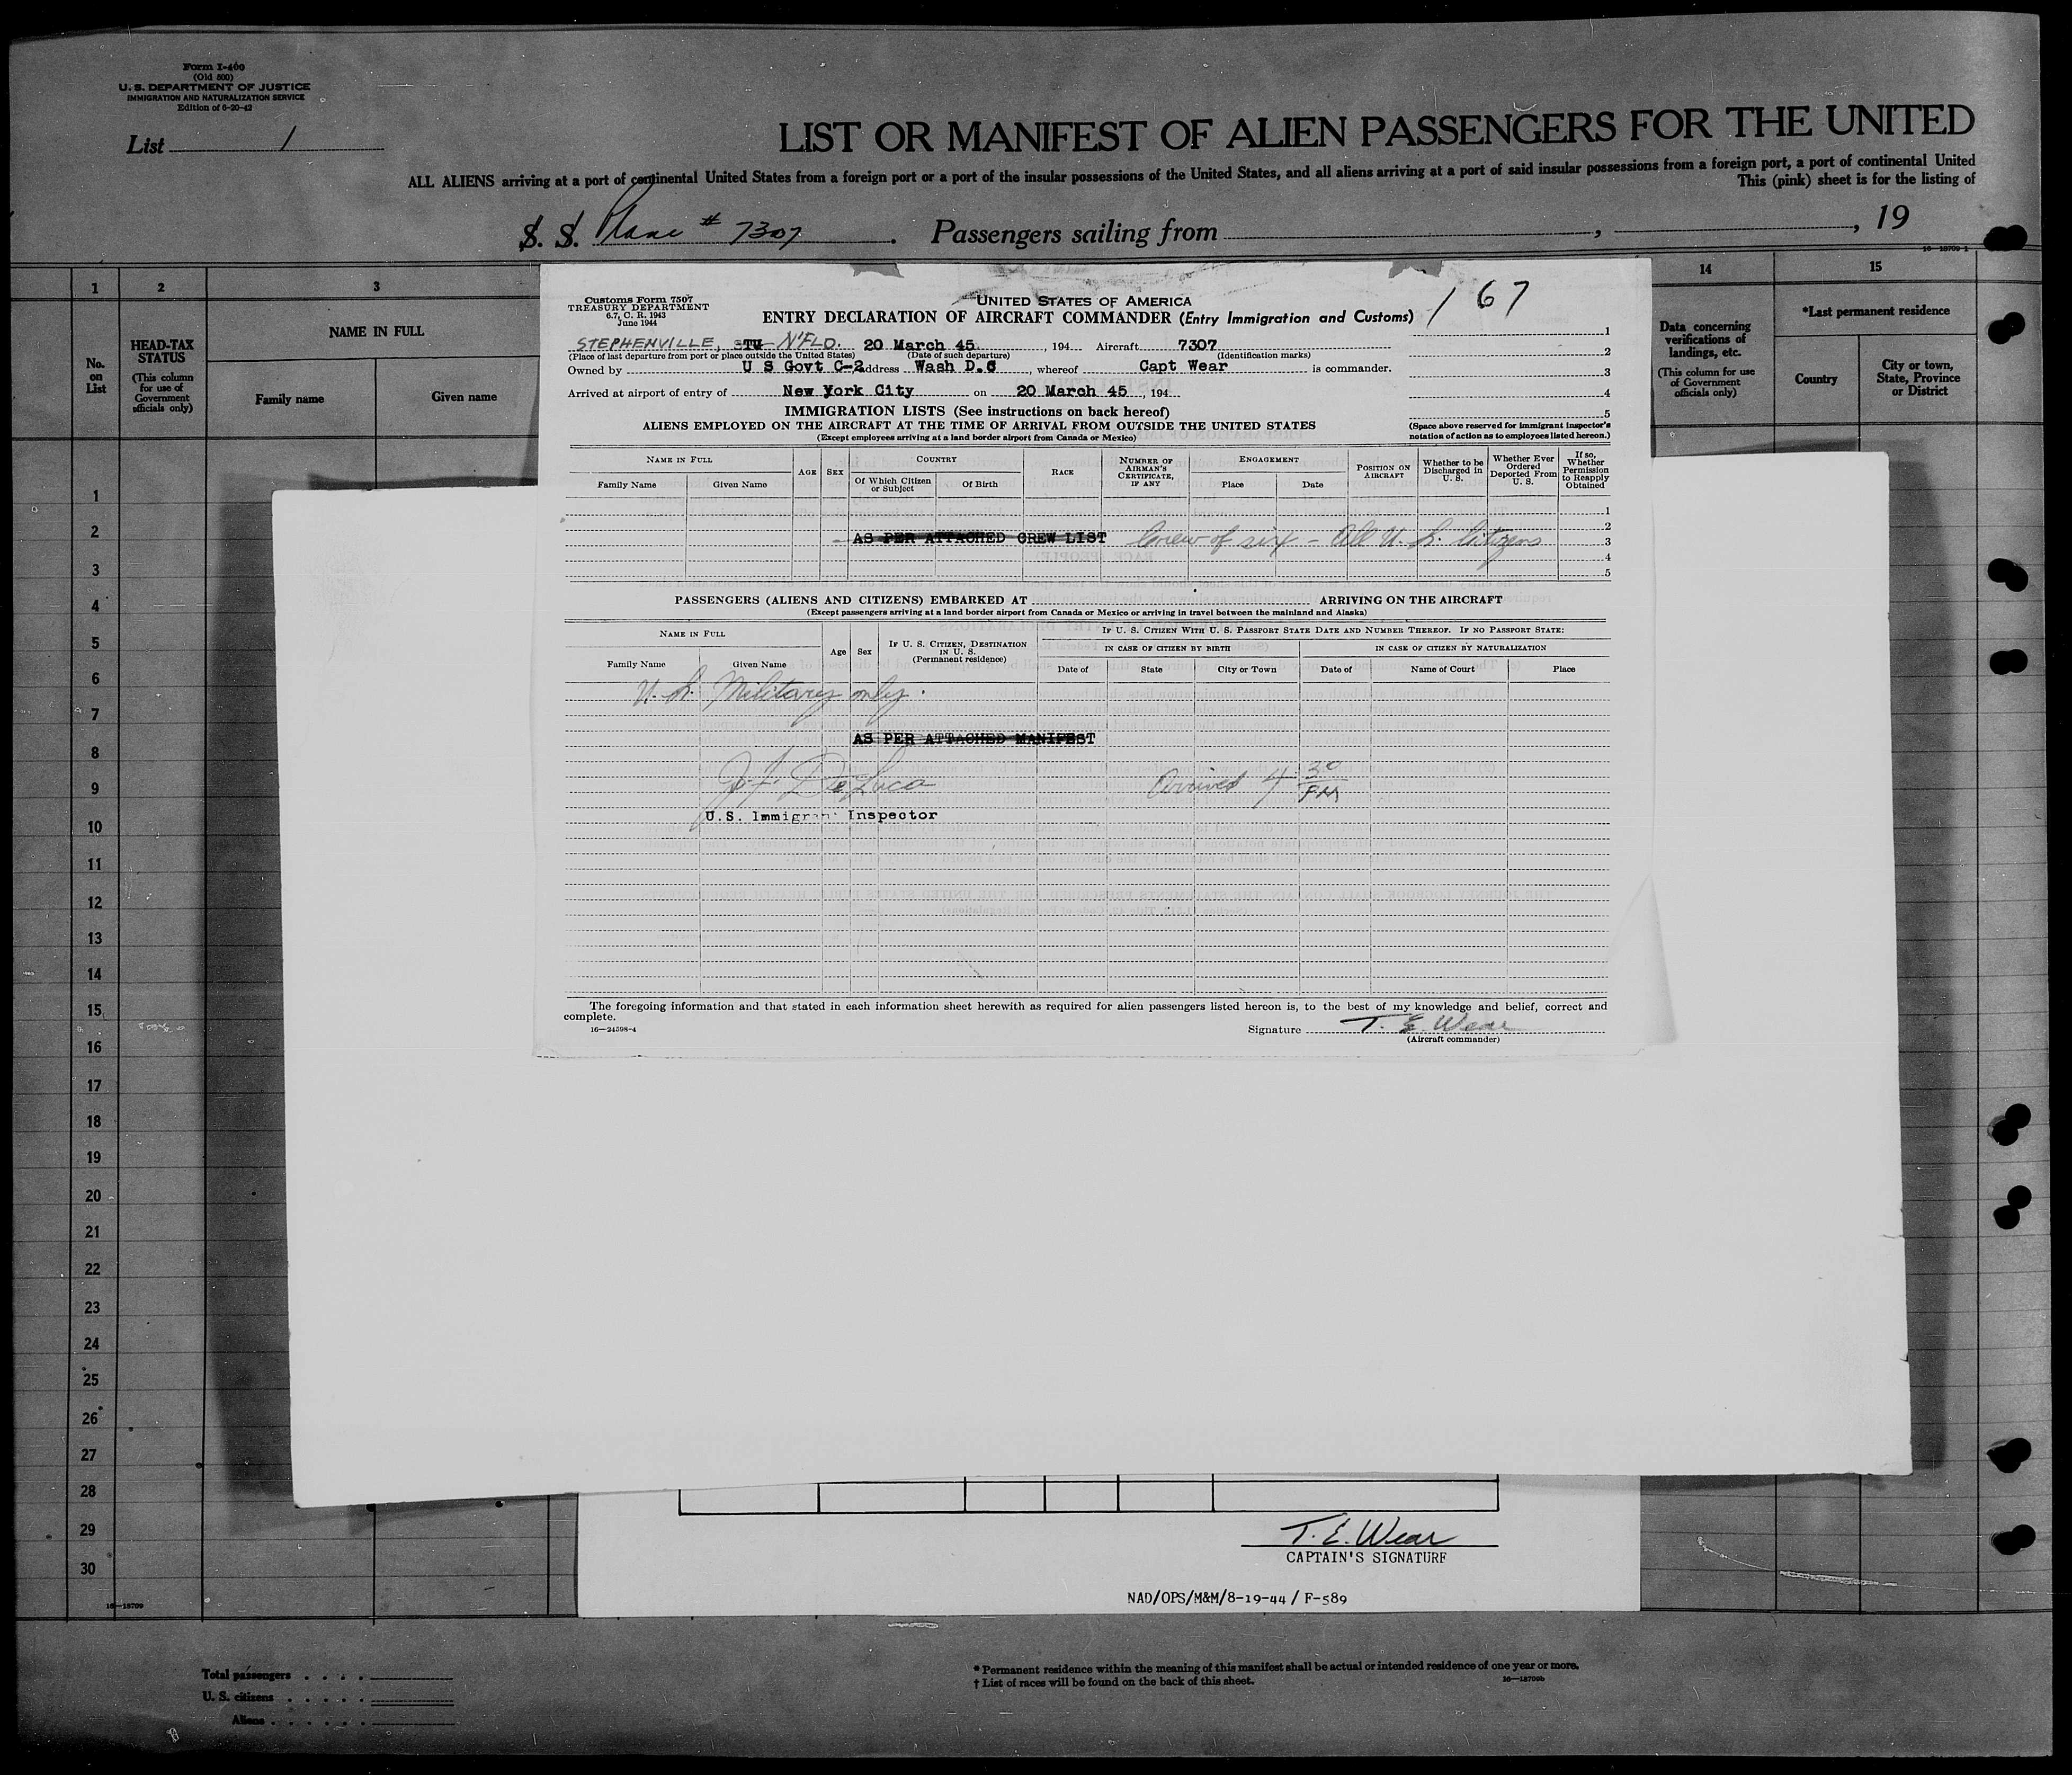 Form I-400
(Old 500)
U. S. DEPARTMENT OF JUSTICE
IMMIGRATION AND NATURALIZATION SERVICE
Edition of 6-20-42
List 1
LIST OR MANIFEST OF ALIEN PASSENGERS FOR THE UNITED
ALL ALIENS arriving at a port of continental United States from a foreign port or a port of the insular possessions of the United States, and all aliens arriving at a port of said insular possessions from a foreign port, a port of continental United
This (pink) sheet is for the listing of
S. S. Plane # 7307. Passengers sailing from , , 19
16—18709-1
1 2 3 14 15
No. on List
HEAD-TAX STATUS
(This column for use of Government officials only)
NAME IN FULL
Family name Given name
Data concerning verifications of landings, etc.
(This column for use of Government officials only)
*Last permanent residence
Country
City or town, State, Province or District
1
2
3
4
5
6
7
8
9
10
11
12
13
14
15
16
17
18
19
20
21
22
23
24
25
26
27
28
29
30
16—18709
Customs Form 7507
TREASURY DEPARTMENT
6.7, C. R. 1943
June 1944
UNITED STATES OF AMERICA
ENTRY DECLARATION OF AIRCRAFT COMMANDER (Entry Immigration and Customs)
/ 67
STEPHENVILLE, N'FLD. 20 March 45, 194 Aircraft 7307
(Place of last departure from port or place outside the United States) (Date of such departure) (Identification marks)
Owned by U S Govt C-2 address Wash D.C, whereof Capt Wear is commander.
Arrived at airport of entry of New York City on 20 March 45, 194
1
2
3
4
5
IMMIGRATION LISTS (See instructions on back hereof)
ALIENS EMPLOYED ON THE AIRCRAFT AT THE TIME OF ARRIVAL FROM OUTSIDE THE UNITED STATES
(Except employees arriving at a land border airport from Canada or Mexico)
(Space above reserved for immigrant inspector's notation of action as to employees listed hereon.)
NAME IN FULL
Family Name Given Name
AGE SEX
COUNTRY
Of Which Citizen or Subject Of Birth
RACE
NUMBER OF AIRMAN'S CERTIFICATE, IF ANY
ENGAGEMENT
Place Date
POSITION ON AIRCRAFT
Whether to be Discharged in U. S.
Whether Ever Ordered Deported From U. S.
If so, Whether Permission to Reapply Obtained
1
2
AS PER ATTACHED CREW LIST Crew of six - All U. S. Citizens 3
4
5
PASSENGERS (ALIENS AND CITIZENS) EMBARKED AT ARRIVING ON THE AIRCRAFT
(Except passengers arriving at a land border airport from Canada or Mexico or arriving in travel between the mainland and Alaska)
NAME IN FULL
Family Name Given Name
Age Sex
IF U. S. CITIZEN, DESTINATION IN U. S.
(Permanent residence)
IF U. S. CITIZEN WITH U. S. PASSPORT STATE DATE AND NUMBER THEREOF. IF NO PASSPORT STATE:
IN CASE OF CITIZEN BY BIRTH IN CASE OF CITIZEN BY NATURALIZATION
Date of State City or Town Date of Name of Court Place
U. S. Military only.
AS PER ATTACHED MANIFEST
J. J. DeLuca Arrived 4 30 PM
U.S. Immigrant Inspector
The foregoing information and that stated in each information sheet herewith as required for alien passengers listed hereon is, to the best of my knowledge and belief, correct and
complete.
16—24598-4
Signature T. E. Wear
(Aircraft commander)
T. E. Wear
CAPTAIN'S SIGNATURE
NAD/OPS/M&M/8-19-44 / F-589
Total passengers
U. S. citizens
Aliens
* Permanent residence within the meaning of this manifest shall be actual or intended residence of one year or more.
† List of races will be found on the back of this sheet.
16—18709b